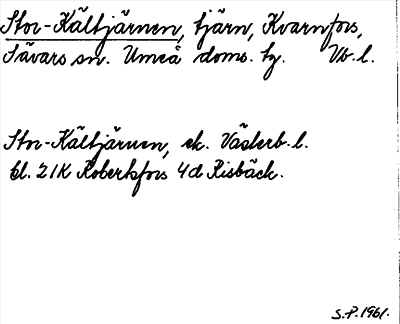 Stor-Kältjärnen, tjärn, Kvarnfors,
Sävars sn. Umeå doms. tg. Vb.l.
Stor-Kältjärnen, ek. Västerb.l.
bl. 21K Robertsfors 4d Risbäck.
S.P. 1961.